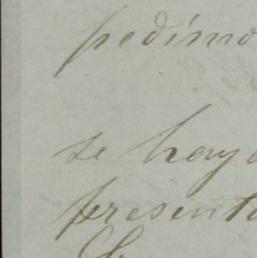 pedimo
se haya
presento